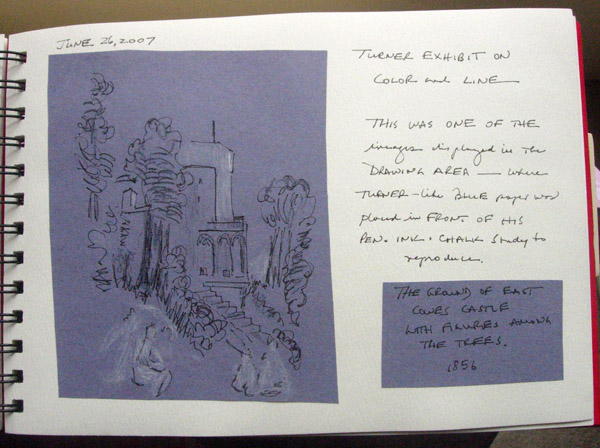 JUNE 26, 2007
TURNER EXHIBIT ON
COLOR and LINE
THIS WAS ONE OF THE
images displayed in the
DRAWING AREA — where
TURNER-like BLUE paper was
placed in FRONT OF HIS
PEN. INK. CHALK study to
reproduce.
THE GROUND OF EAST
COWES CASTLE
WITH FIGURES AMONG
THE TREES.
1856